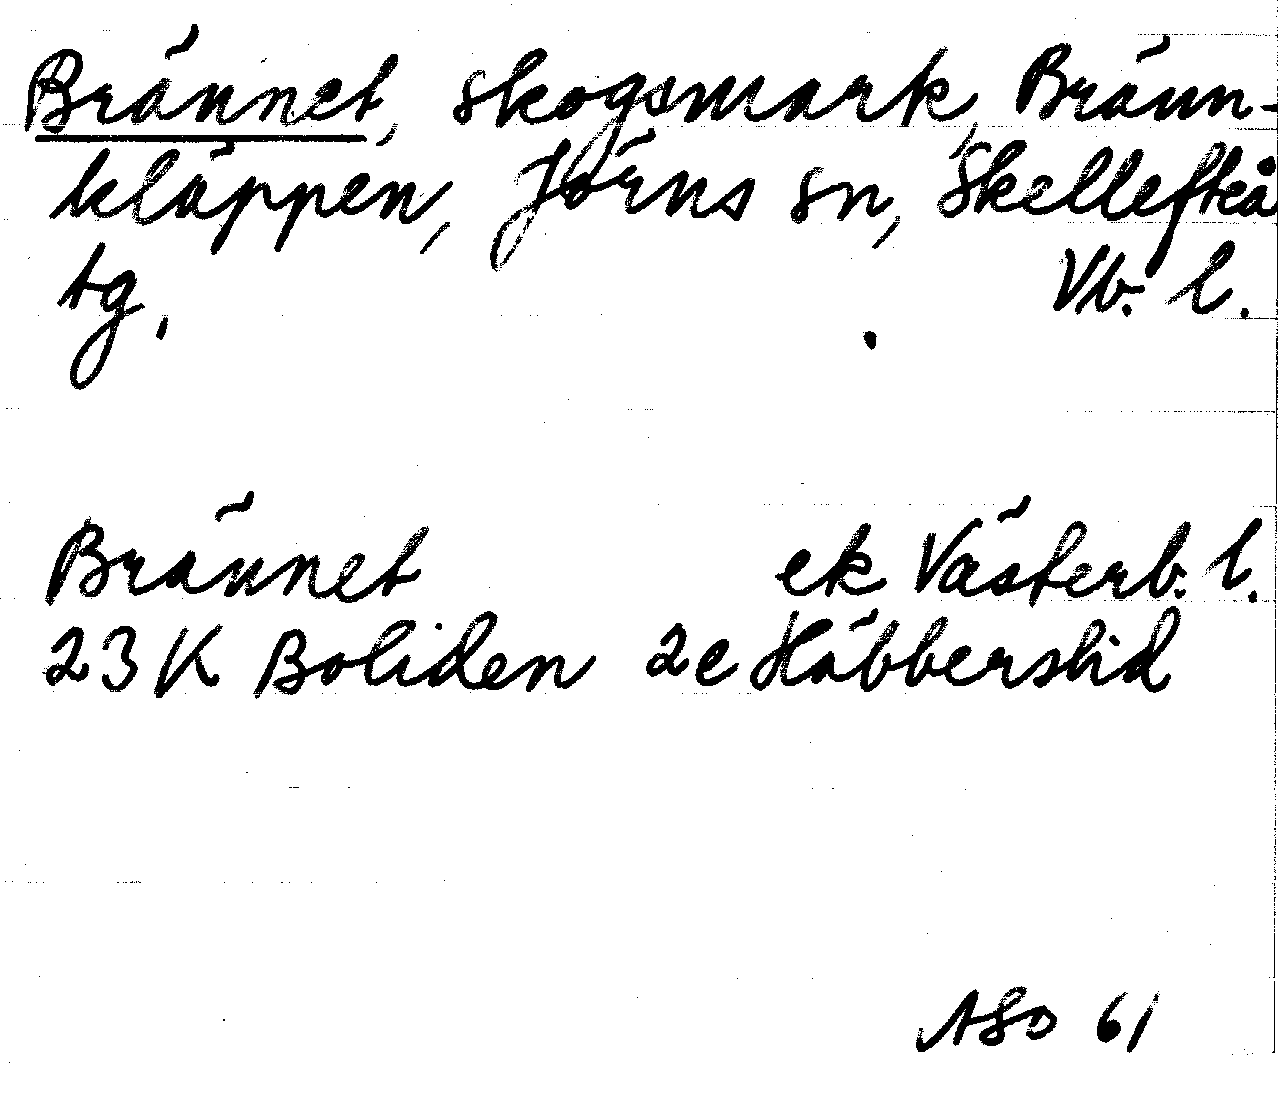 Brännet, skogsmark, Bränn-
kläppen, Jörns sn, Skellefteå
tg. Vb. l.
Brännet ek Västerb. l.
23 K Boliden 2e Häbbershid
ASD 61